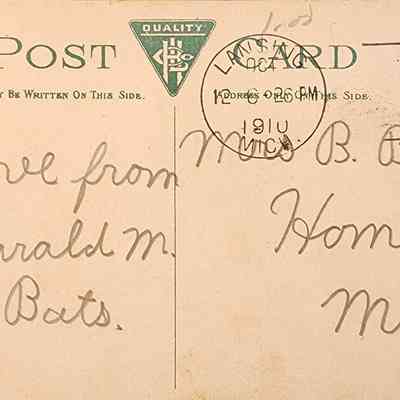 POST CARD
QUALITY
Y BE WRITTEN ON THIS SIDE.
ADDRESS ONLY ON THIS SIDE.
LANSING
OCT
12 6 PM
1910
MICH.
ve from
rald M.
Bats.
Miss B. B
Hom
M